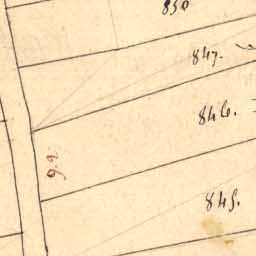 850
847.
846.
845.